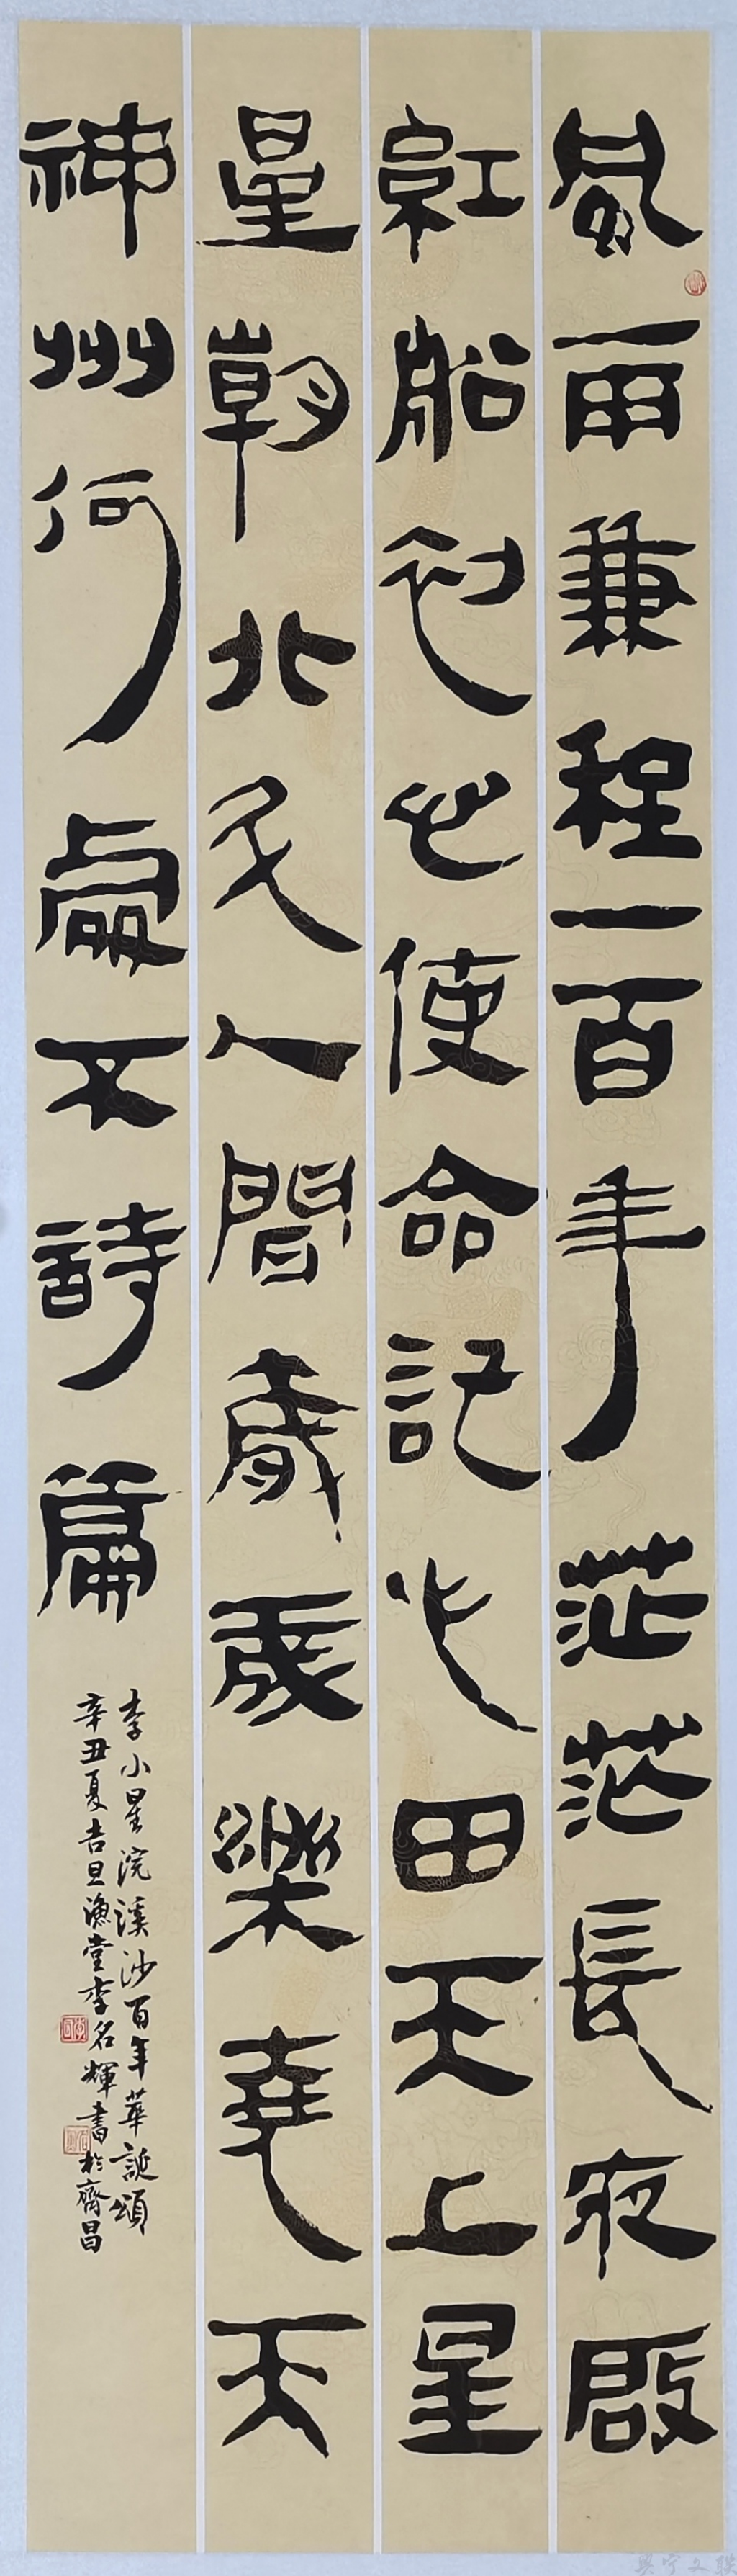 風雨兼程一百年茫茫長夜啟
紅船初心使命記心田天上星
星朝北斗人間歲歲樂堯天
神州何處不詩篇
李小星浣溪沙百年華誕頌
辛丑夏吉旦漁堂李名輝書於齊昌